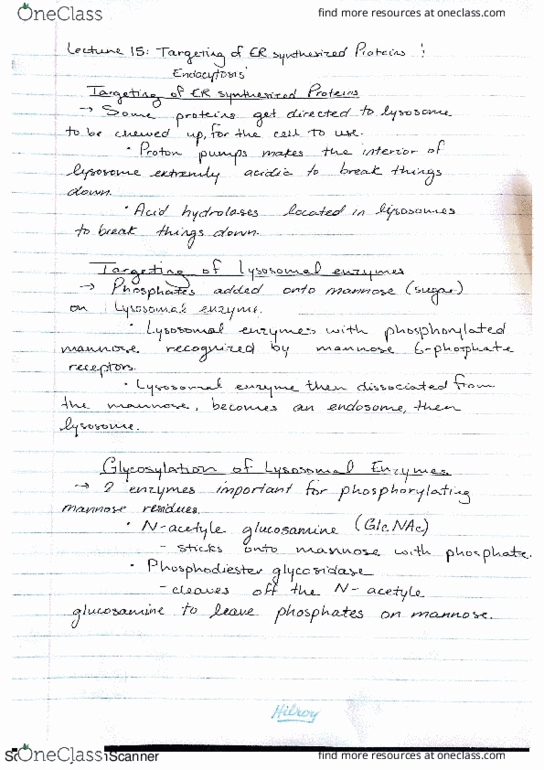 OneClass
find more resources at oneclass.com
Lecture 15: Targeting of ER synthesized Proteins :
Endocytosis
Targeting of ER synthesized Proteins
→ Some proteins get directed to lysosome
to be chewed up, for the cell to use.
• Proton pumps makes the interior of
lysosome extremly acidic to break things
down.
• Acid hydrolases located in liposomes
to break things down.
Targeting of lysosomal enzymes
→ Phosphates added onto mannose (sugar)
on Lysosomal enzyme.
• Lysosomal enzymes with phosphorylated
mannose recognized by mannose 6-phosphate
receptors.
• Lysosomal enzyme then dissociated from
the mannose, becomes an endosome, then
lysosome.
Glycosylation of Lysosomal Enzymes
→ 2 enzymes important for phosphorylating
mannose residues.
• N-acetyle glucosamine (GlcNAc)
- sticks onto mannose with phosphate.
• Phosphodiester glycosidase
- cleaves off the N-acetyle
glucosamine to leave phosphates on mannose.
Hilroy
OneClass Scanner
find more resources at oneclass.com